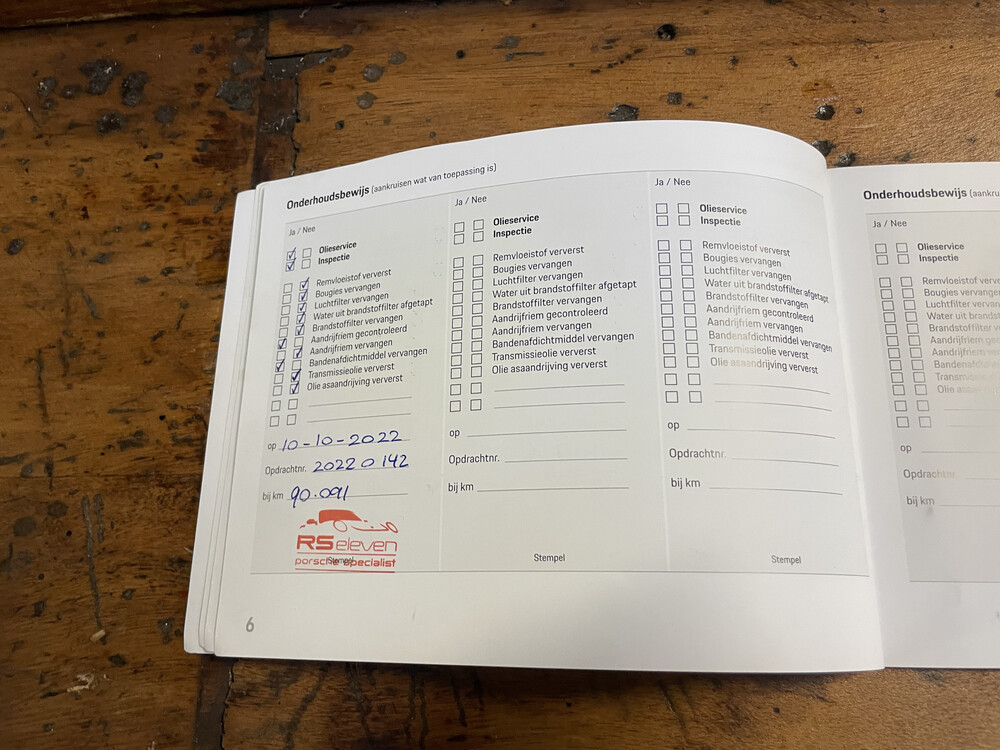 Onderhoudsbewijs (aankruisen wat van toepassing is)
Ja / Nee
Olieservice
Inspectie
Remvloeistof ververst
Bougies vervangen
Luchtfilter vervangen
Water uit brandstoffilter afgetapt
Brandstoffilter vervangen
Aandrijfriem gecontroleerd
Aandrijfriem vervangen
Bandenafdichtmiddel vervangen
Transmissieolie ververst
Olie asaandrijving ververst
op 10-10-2022
Opdrachtnr. 20220142
bij km 90.091
RS eleven
porsche specialist
Stempel
6
Ja / Nee
Olieservice
Inspectie
Remvloeistof ververst
Bougies vervangen
Luchtfilter vervangen
Water uit brandstoffilter afgetapt
Brandstoffilter vervangen
Aandrijfriem gecontroleerd
Aandrijfriem vervangen
Bandenafdichtmiddel vervangen
Transmissieolie ververst
Olie asaandrijving ververst
op
Opdrachtnr.
bij km
Stempel
Ja / Nee
Olieservice
Inspectie
Remvloeistof ververst
Bougies vervangen
Luchtfilter vervangen
Water uit brandstoffilter afgetapt
Brandstoffilter vervangen
Aandrijfriem gecontroleerd
Aandrijfriem vervangen
Bandenafdichtmiddel vervangen
Transmissieolie ververst
Olie asaandrijving ververst
op
Opdrachtnr.
bij km
Stempel
Onderhoudsbewijs (aankru
Ja / Nee
Olieservice
Inspectie
Remvloeistof ververs
Bougies vervangen
Luchtfilter vervang
Water uit brandst
Brandstoffilter v
Aandrijfriem g
Aandrijfriem
Bandenafd
Olie
op
Opdrachtnr.
bij km